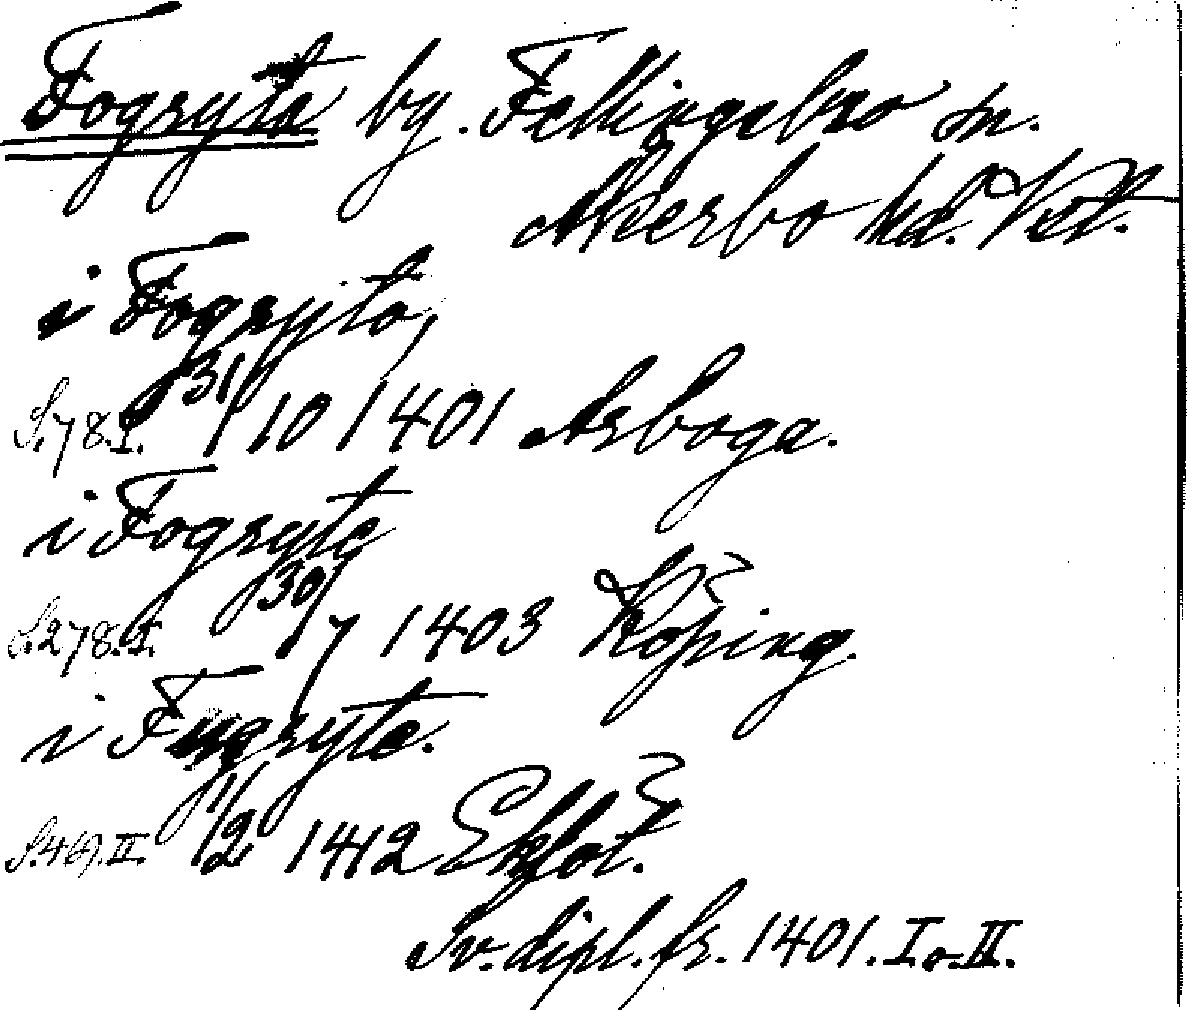 Fogryta by. Fellingsbro sn.
Åkerbo hd. Vstl.
i Fogryta,
S. 78. I. 31/10 1401 Arboga.
i Fogryte
S. 278. I. 30/7 1403 Köping.
i Fugryte.
S. 469. II. 1/2 1412
Sv. dipl. fr. 1401. I o. II.